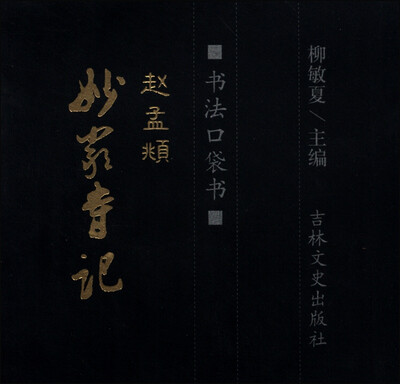 柳敏夏／主编
吉林文史出版社
■书法口袋书■
赵孟頫
妙严寺记